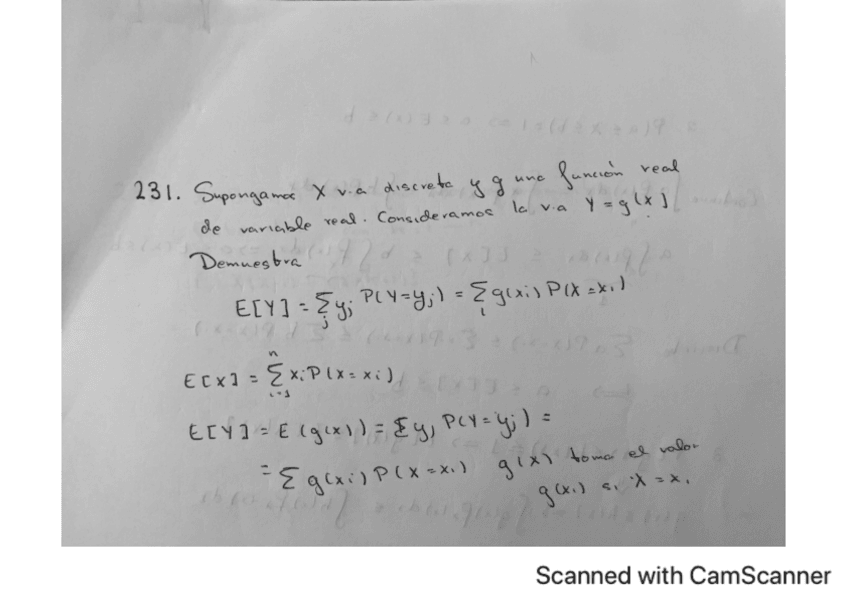 231. Supongamos X v.a discreta y g una función real
de variable real. Consideramos la v.a Y = g(X)
Demuestra
E[Y] = Σ_j y_j P(Y=y_j) = Σ_i g(x_i) P(X=x_i)
E[X] = Σ_{i=1}^n x_i P(X=x_i)
E[Y] = E(g(x)) = Σ y_j P(Y=y_j) =
= Σ g(x_i) P(X=x_i) g(x) toma el valor
g(x_i) si X=x_i
Scanned with CamScanner